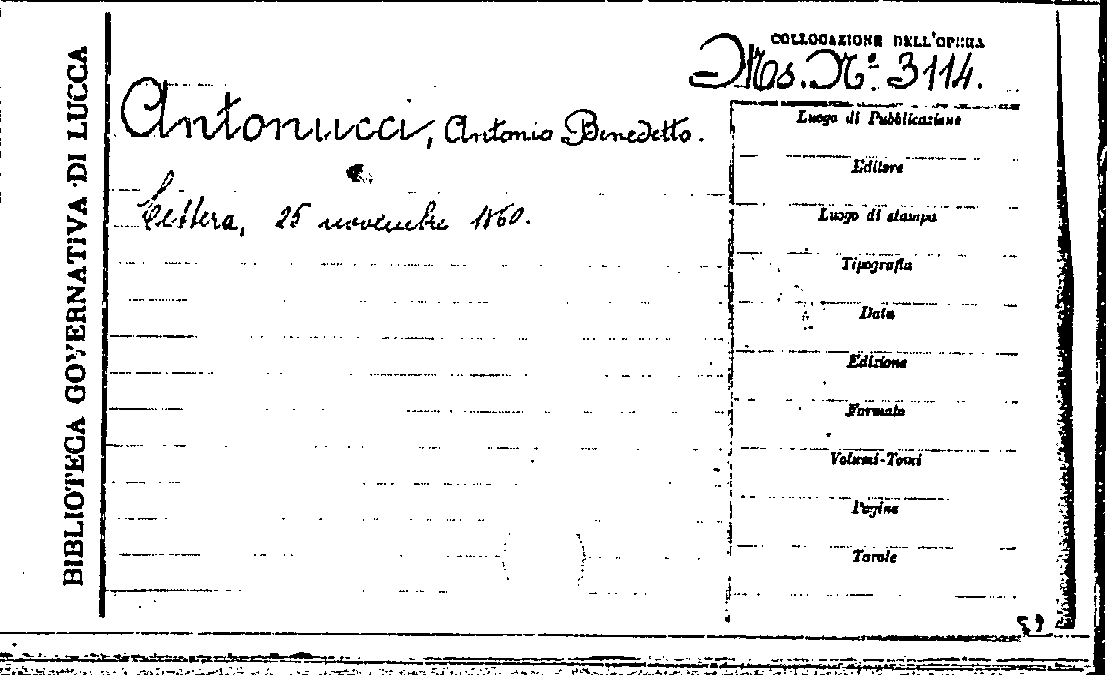 BIBLIOTECA GOVERNATIVA DI LUCCA
COLLOCAZIONE DELL'OPERA
Ms. Nº. 3114.
Antonucci, Antonio Benedetto.
Lettera, 25 novembre 1860.
Luogo di Pubblicazione
Editore
Luogo di stampa
Tipografia
Data
Edizione
Formato
Volumi-Tomi
Pagine
Tavole